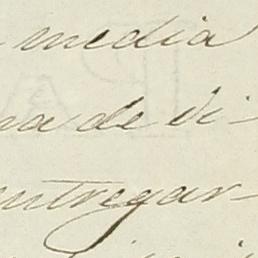 media
na de vi-
entregar-